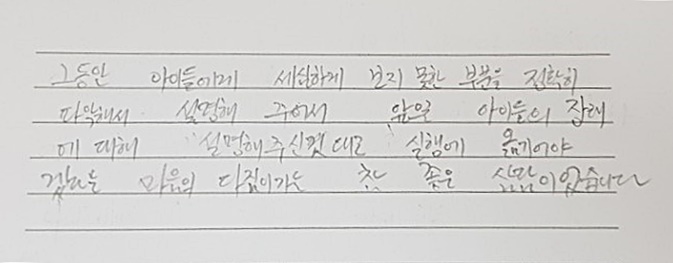 그동안 아이들에게 세심하게 보지 못한 부분을 정확히
파악해서 설명해 주어서 앞으로 아이들의 장래
에 대해 설명해주신것 대로 실행에 옮기어야
겠다는 마음의 다짐이가는 참 좋은 상담이었습니다